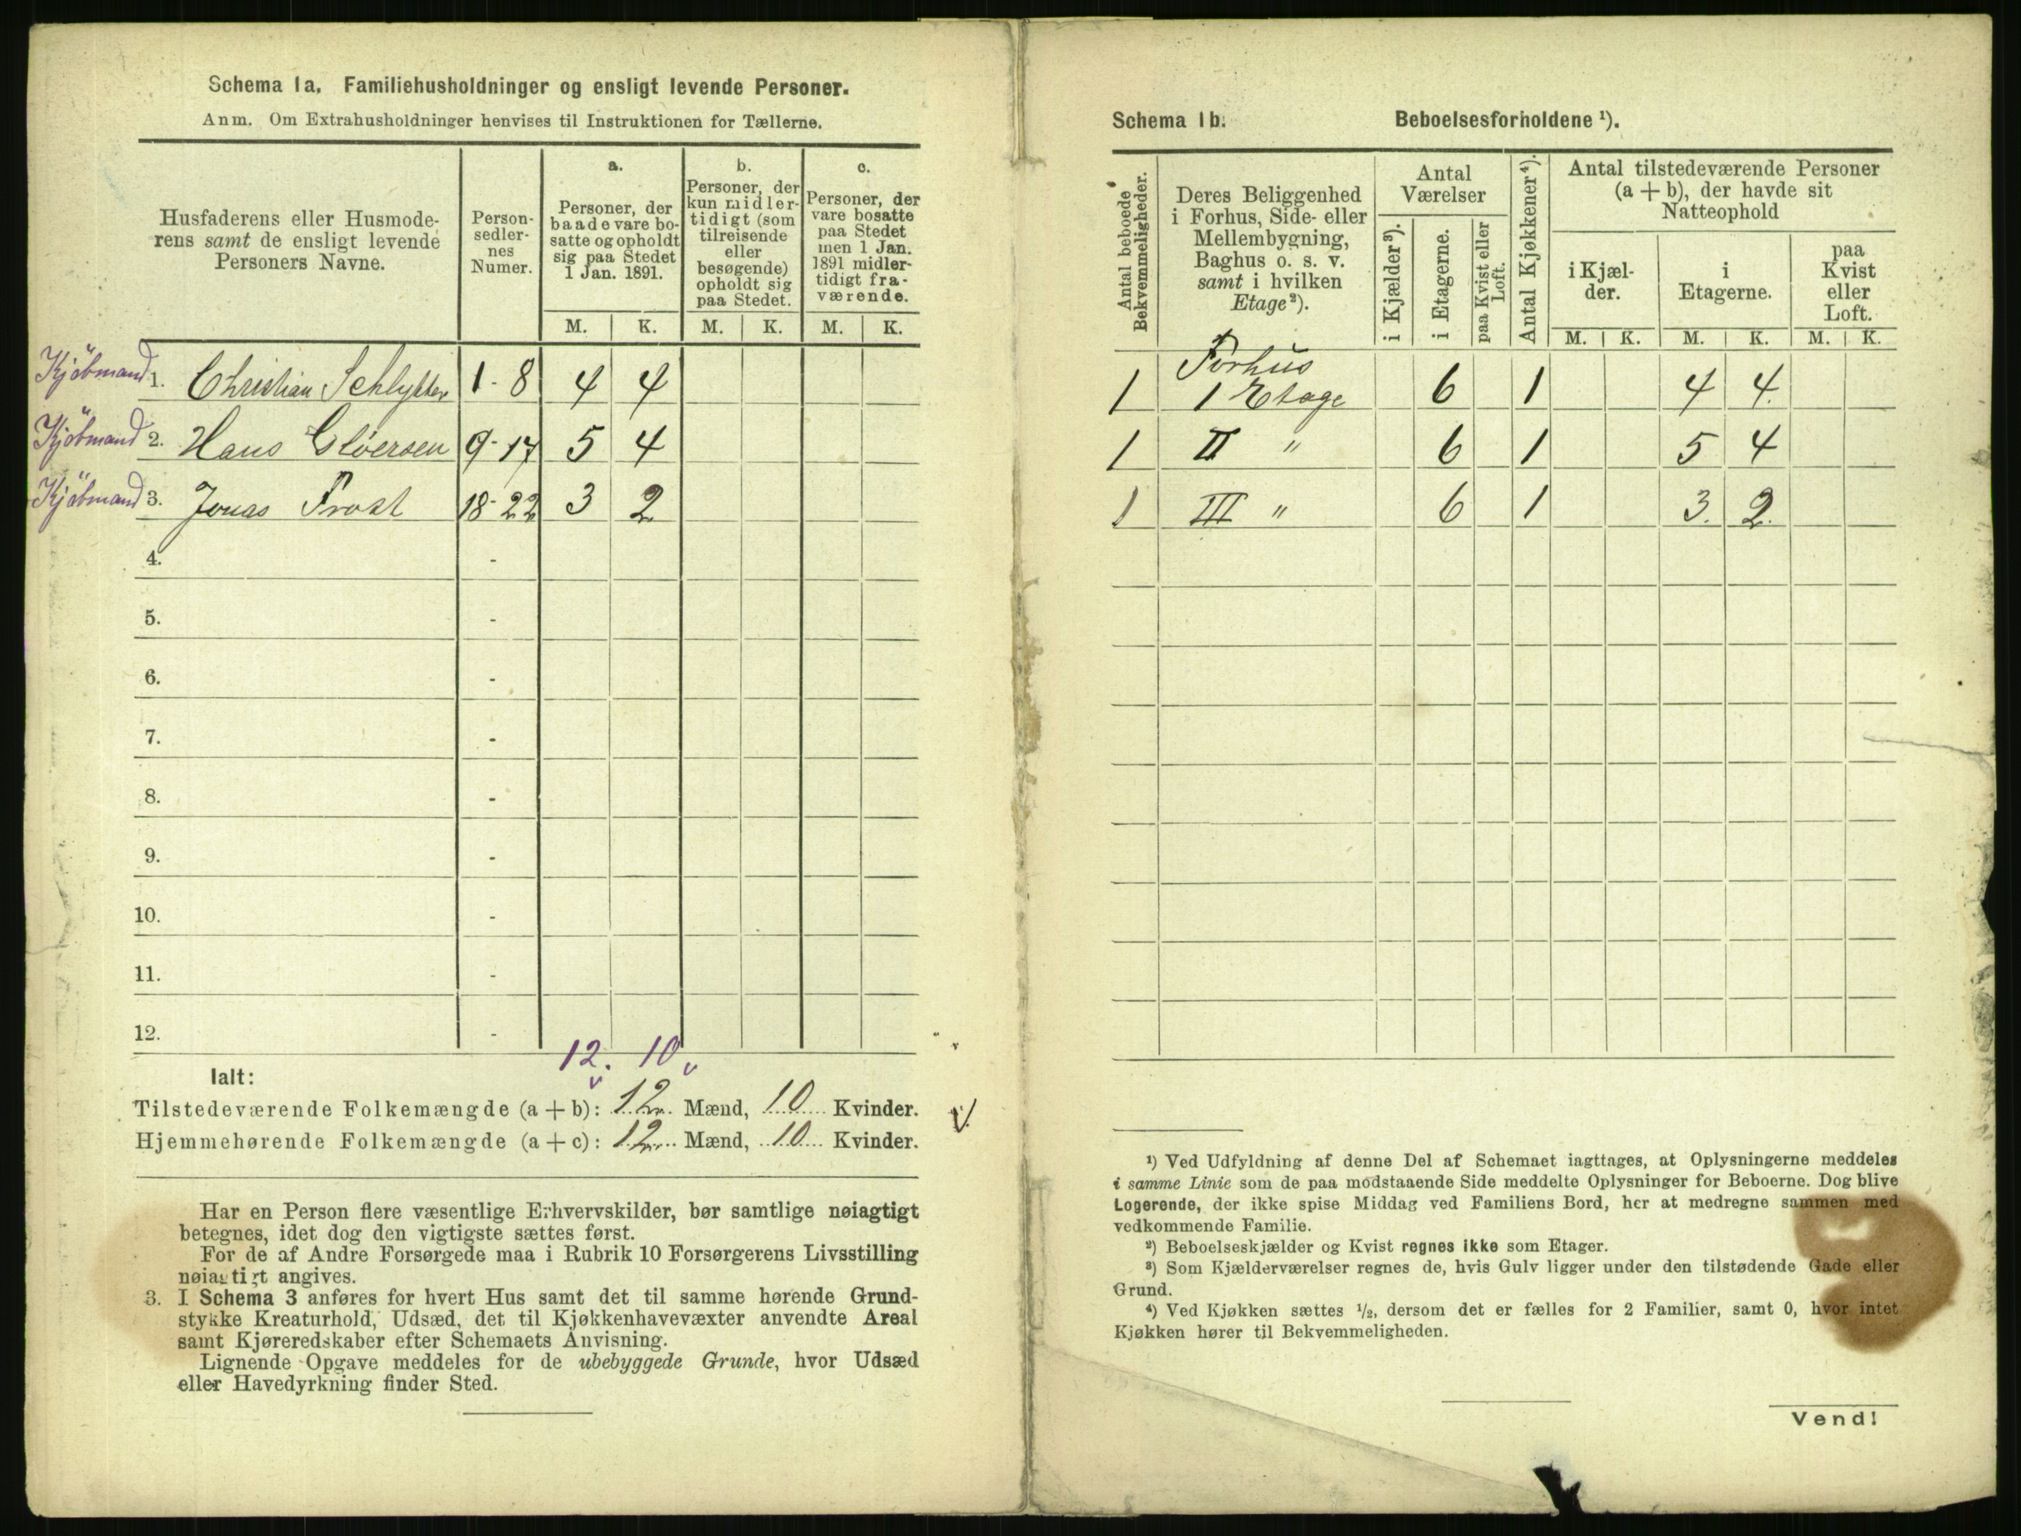 Schema 1a. Familiehusholdninger og ensligt levende Personer.
Anm. Om Extrahusholdninger henvises til Instruktionen for Tællerne.
Husfaderens eller Husmoderens samt de ensligt levende Personers Navne.
Personsedlernes Numer.
a.
Personer, der baade vare bosatte og opholdt sig paa Stedet 1 Jan. 1891.
b.
Personer, der kun midlertidigt (som tilreisende eller besøgende) opholdt sig paa Stedet.
c.
Personer, der vare bosatte paa Stedet men 1 Jan. 1891 midlertidigt fraværende.
M. K. M. K. M. K.
Kjöbmand 1. Christian Schlytter 1 - 8 4 4
Kjöbmand 2. Hans Glöersen 9 - 17 5 4
Kjöbmand 3. Jonas Frost 18 - 22 3 2
4. -
5. -
6. -
7. -
8. -
9. -
10. -
11. -
12. -
12. 10
Ialt:
Tilstedeværende Folkemængde (a + b): 12 Mænd, 10 Kvinder.
Hjemmehørende Folkemængde (a + c): 12 Mænd, 10 Kvinder.
Har en Person flere væsentlige Erhvervskilder, bør samtlige nøiagtigt
betegnes, idet dog den vigtigste sættes først.
For de af Andre Forsørgede maa i Rubrik 10 Forsørgerens Livsstilling
nøiagtigt angives.
3. I Schema 3 anføres for hvert Hus samt det til samme hørende Grund-
stykke Kreaturhold, Udsæd, det til Kjøkkenhavevæxter anvendte Areal
samt Kjøreredskaber efter Schemaets Anvisning.
Lignende Opgave meddeles for de ubebyggede Grunde, hvor Udsæd
eller Havedyrkning finder Sted.
Schema 1b. Beboelsesforholdene ¹).
Antal beboede Bekvemmeligheder.
Deres Beliggenhed i Forhus, Side- eller Mellembygning, Baghus o. s. v. samt i hvilken Etage²).
Antal Værelser
i Kjælder³).
i Etagerne.
paa Kvist eller Loft.
Antal Kjøkkener⁴).
Antal tilstedeværende Personer (a + b), der havde sit Natteophold
i Kjælder.
i Etagerne.
paa Kvist eller Loft.
M. K. M. K. M. K.
1 Forhus 1 Etage 6 1 4 4
1 II " 6 1 5 4
1 III " 6 1 3. 2.
¹) Ved Udfyldning af denne Del af Schemaet iagttages, at Oplysningerne meddeles
i samme Linie som de paa modstaaende Side meddelte Oplysninger for Beboerne. Dog blive
Logerende, der ikke spise Middag ved Familiens Bord, her at medregne sammen med
vedkommende Familie.
²) Beboelseskjælder og Kvist regnes ikke som Etager.
³) Som Kjælderværelser regnes de, hvis Gulv ligger under den tilstødende Gade eller
Grund.
⁴) Ved Kjøkken sættes ½, dersom det er fælles for 2 Familier, samt 0, hvor intet
Kjøkken hører til Bekvemmeligheden.
Vend!